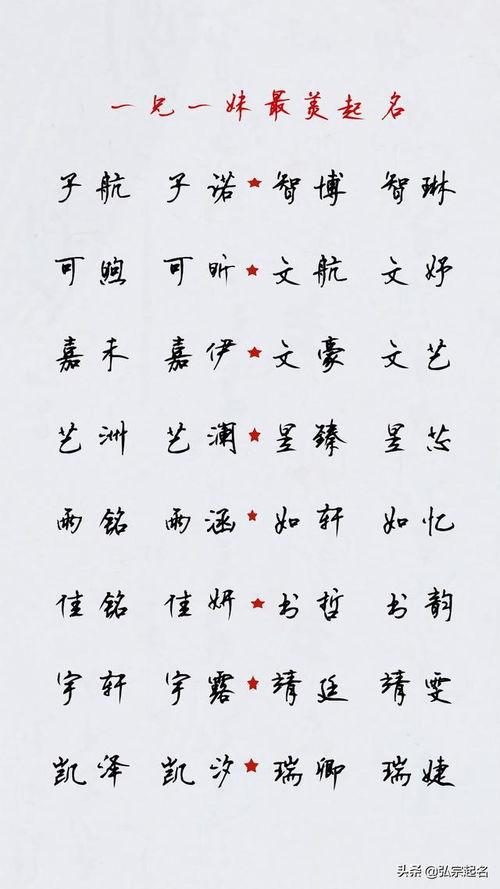 一兄一妹最美起名
子航 子诺★智博 智琳
可煦 可昕★文航 文妤
嘉未 嘉伊★文豪 文艺
艺洲 艺澜★昱臻 昱芯
雨铭 雨涵★如轩 如忆
佳铭 佳妍★书哲 书韵
宇轩 宇露★靖廷 靖雯
凯泽 凯汐★瑞卿 瑞婕
头条 @弘宗起名